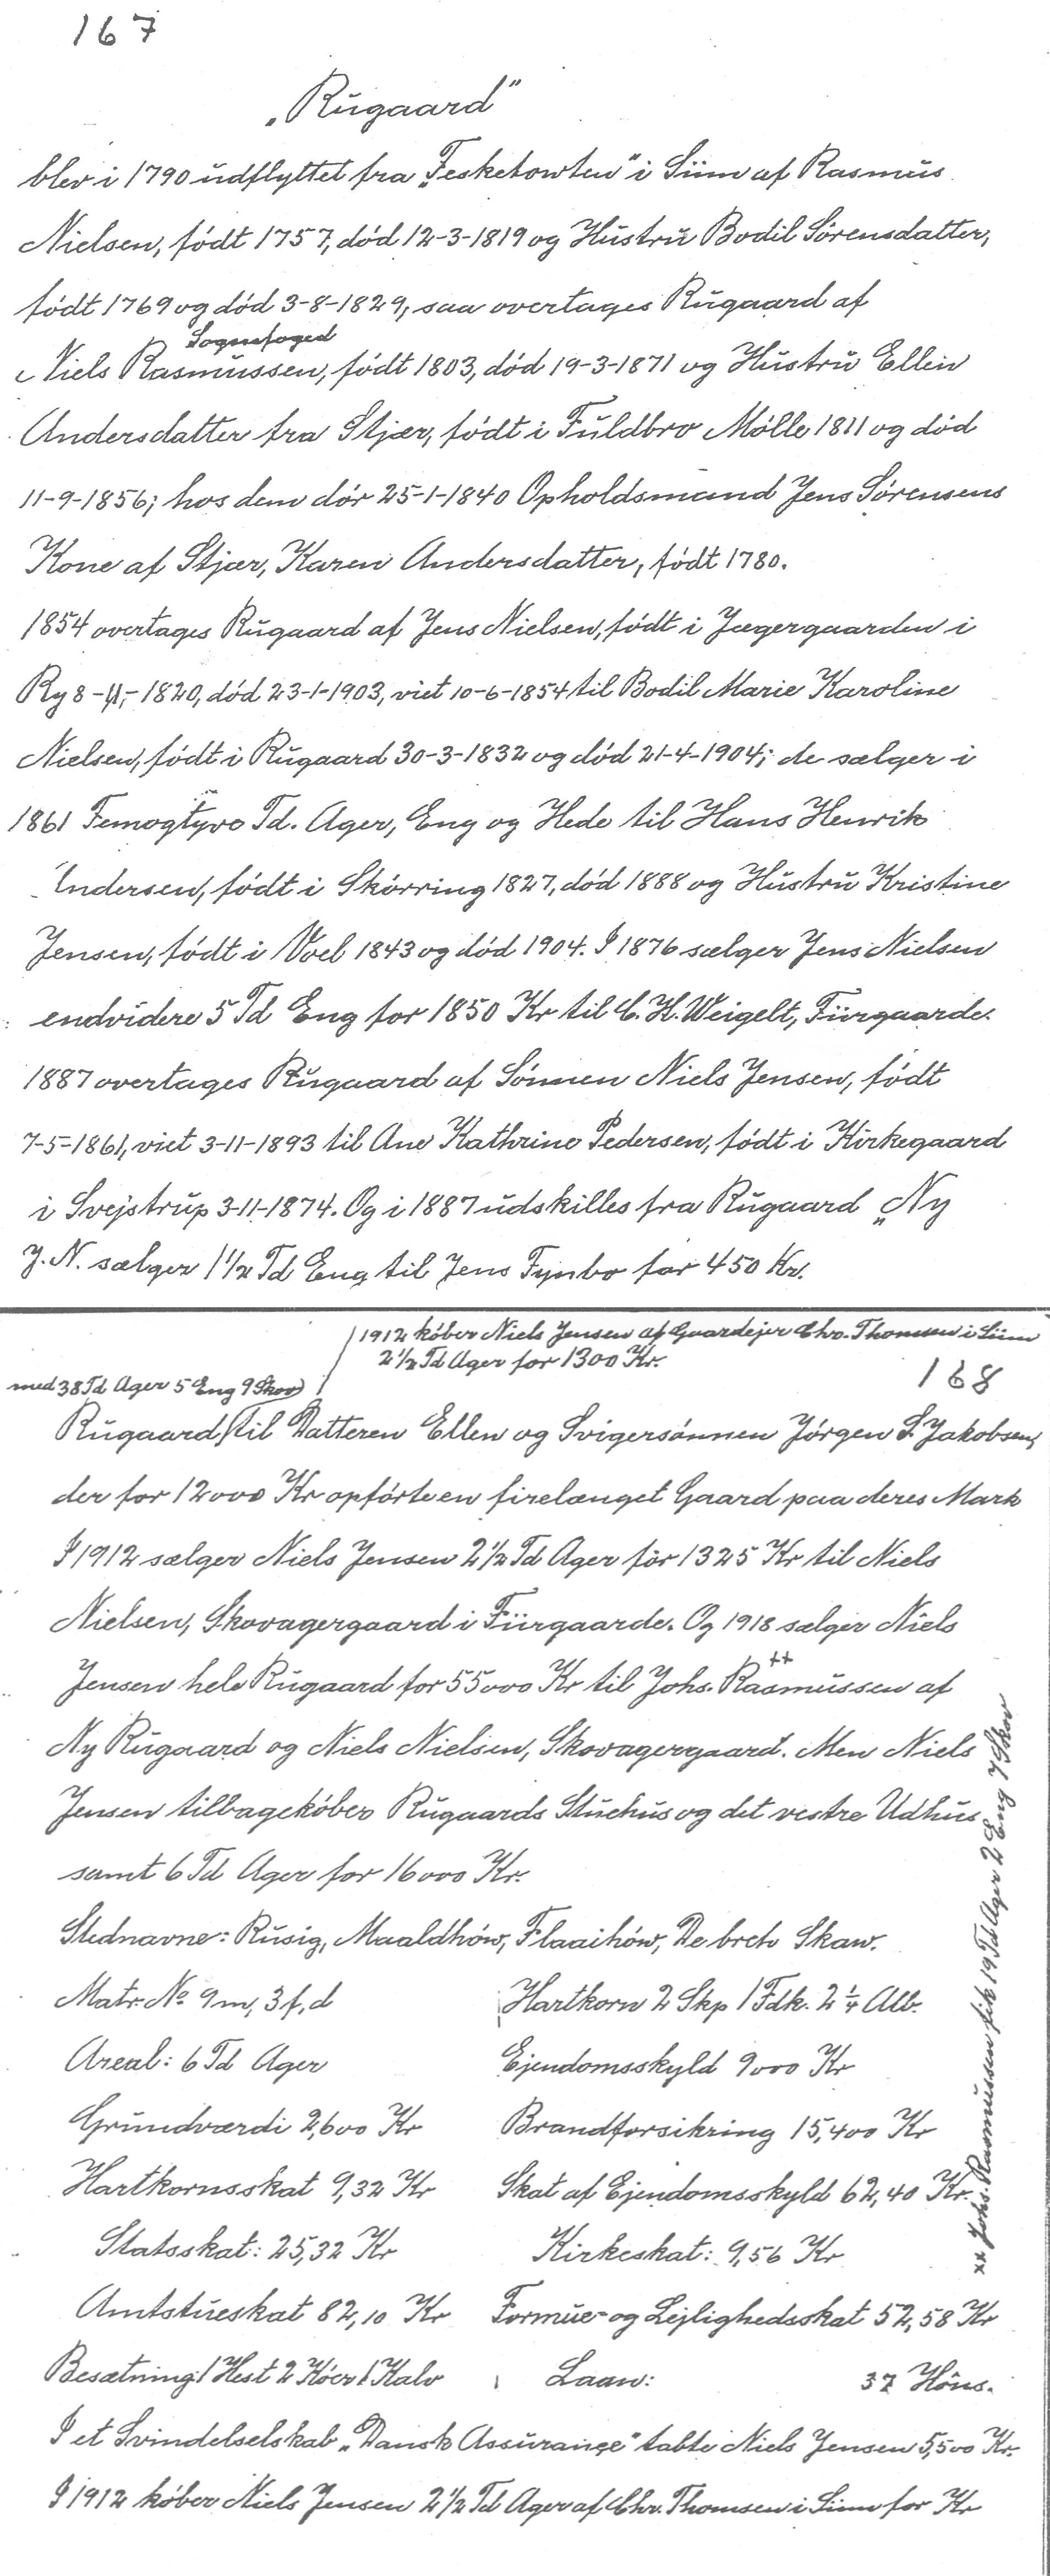 167
„Rugaard"
blev i 1790 udflyttet fra „Fesketowten" i Siim af Rasmus
Nielsen, født 1757, død 12-3-1819 og Hustru Bodil Sørensdatter,
født 1769 og død 3-8-1829, saa overtages Rugaard af
Sognefoged
Niels Rasmussen, født 1803, død 19-3-1871 og Hustru Ellen
Andersdatter fra Stjær, født i Fuldbro Mølle 1811 og død
11-9-1856; hos dem dør 25-1-1840 Opholdsmand Jens Sørensens
Kone af Stjær, Karen Andersdatter, født 1780.
1854 overtages Rugaard af Jens Nielsen, født i Jægergaarden i
Ry 8-11-1820, død 23-1-1903, viet 10-6-1854 til Bodil Marie Karoline
Nielsen, født i Rugaard 30-3-1832 og død 21-4-1904; de sælger i
1861 Femogtyve Td. Ager, Eng og Hede til Hans Henrik
Andersen, født i Skørring 1827, død 1888 og Hustru Kristine
Jensen, født i Voel 1843 og død 1904. I 1876 sælger Jens Nielsen
endvidere 5 Td Eng for 1850 Kr til C. H. Weigelt, Fiirgaarde.
1887 overtages Rugaard af Sønnen Niels Jensen, født
7-5-1861, viet 3-11-1893 til Ane Kathrine Pedersen, født i Kirkegaard
i Svejstrup 3-11-1874. Og i 1887 udskilles fra Rugaard „Ny
J. N. sælger 1 1/2 Td Eng til Jens Fynbo for 450 Kr.
1912 køber Niels Jensen af Gaardejer Chr. Thomsen i Siim
2 1/2 Td Ager for 1300 Kr.
168
med 38 Td Ager 5 Eng 9 Skov
Rugaard til Datteren Ellen og Svigersønnen Jørgen S. Jakobsen,
der for 12000 Kr opførte en firelænget Gaard paa deres Mark
I 1912 sælger Niels Jensen 2 1/2 Td Ager for 1325 Kr til Niels
Nielsen, Skovagergaard i Fiirgaarde. Og 1918 sælger Niels
Jensen hele Rugaard for 55000 Kr til Johs. Rasmussen xx af
Ny Rugaard og Niels Nielsen, Skovagergaard. Men Niels
Jensen tilbagekøber Rugaards Stuehus og det vestre Udhus
samt 6 Td Ager for 16000 Kr.
Stednavne: Rusig, Maaldhów, Flaaihów, De brete Skaw.
Matr. No 9m, 3f, d Hartkorn 2 Skp 1 Fdk. 2 1/4 Alb.
Areal: 6 Td Ager Ejendomsskyld 9000 Kr
Grundværdi 2,600 Kr Brandforsikring 15,400 Kr
Hartkornsskat 9,32 Kr Skat af Ejendomsskyld 62,40 Kr.
Statsskat: 25,32 Kr Kirkeskat: 9,56 Kr
Amtstueskat 82,10 Kr Formue- og Lejlighedsskat 52,58 Kr
Besætning: 1 Hest 2 Køer 1 Kalv Laan: 37 Høns.
I et Svindelselskab „Dansk Assurance" tabte Niels Jensen 5,500 Kr.
I 1912 køber Niels Jensen 2 1/2 Td Ager af Chr. Thomsen i Siim for Kr
xx Johs. Rasmussen fik 19 Td Ager 2 Eng 7 Skov